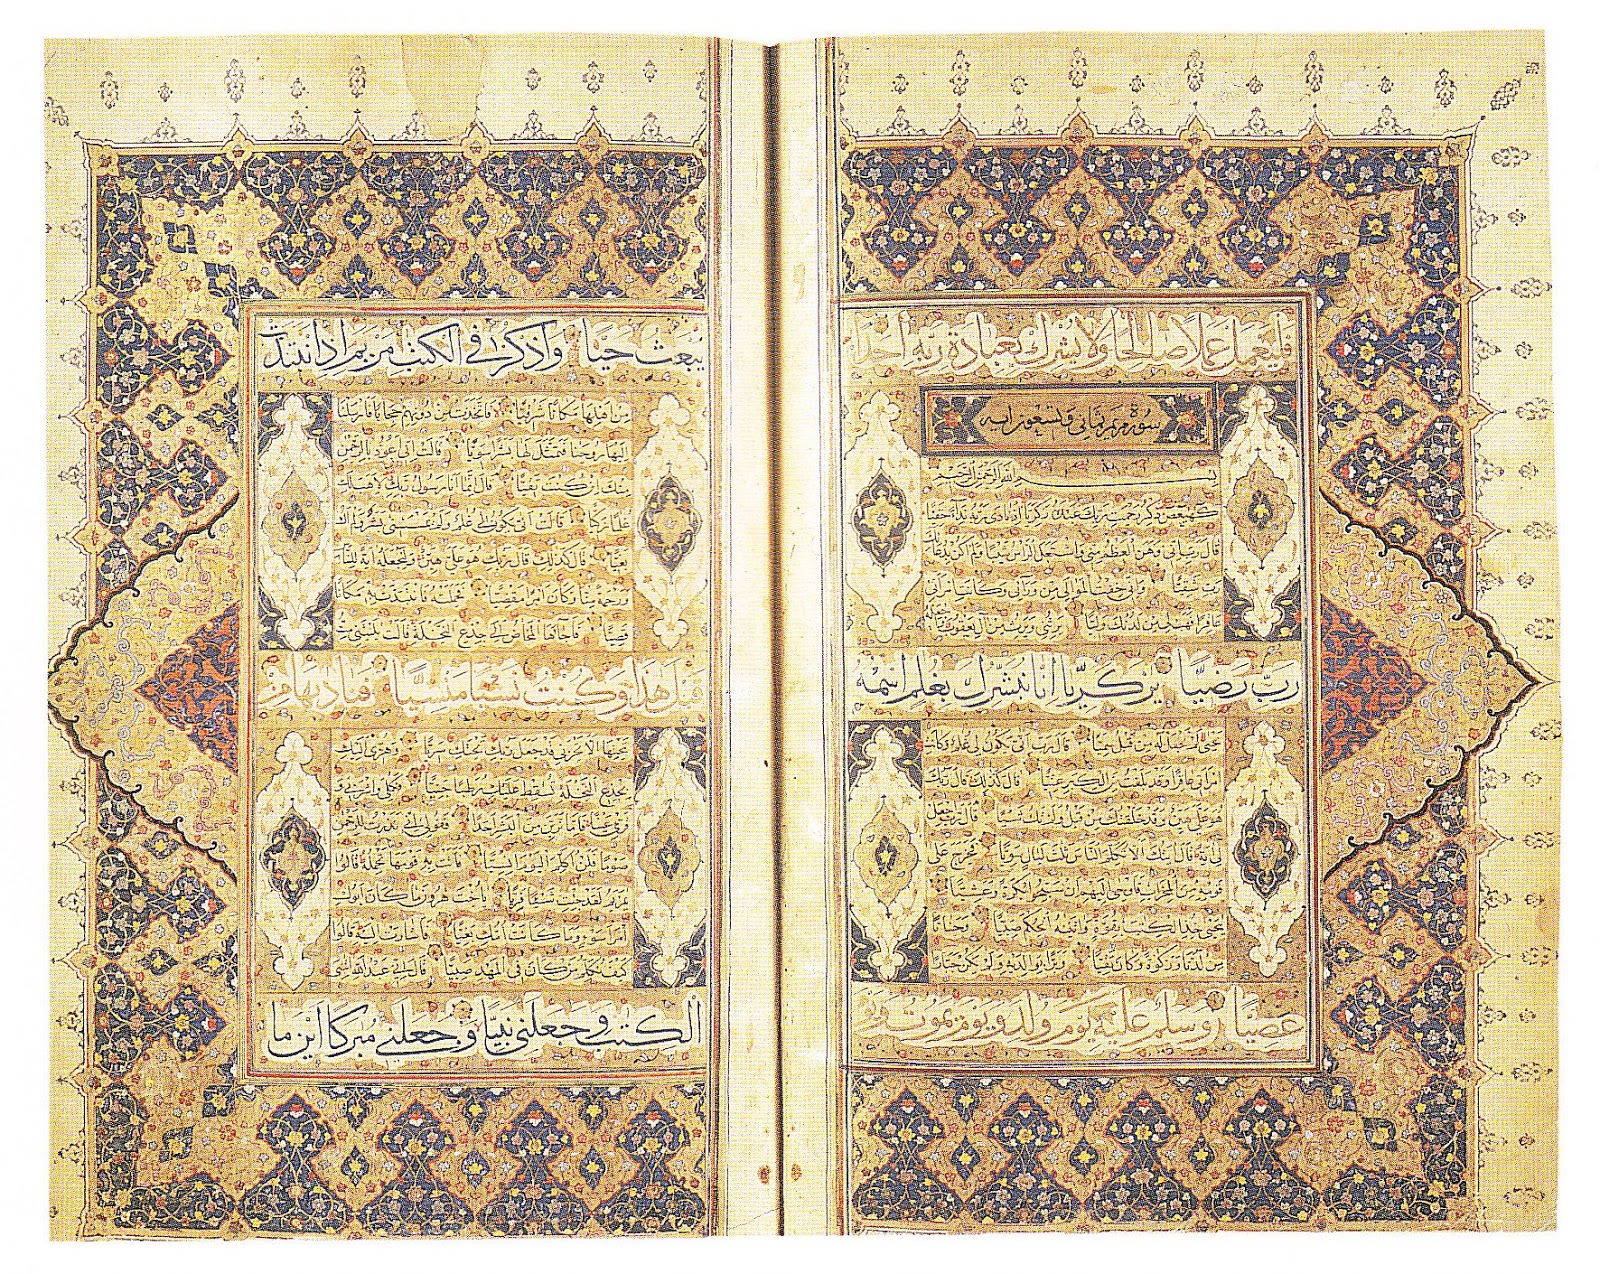 فليعمل عملا صالحا ولا يشرك بعبادة ربه احدا
سورة مريم ثماني وتسعون اية
بسم الله الرحمن الرحيم
كهيعص ذكر رحمت ربك عبده زكريا اذ نادى ربه نداء خفيا
قال رب اني وهن العظم مني واشتعل الراس شيبا ولم اكن بدعائك
رب شقيا واني خفت الموالي من ورائي وكانت امراتي
عاقرا فهب لي من لدنك وليا يرثني ويرث من ال يعقوب واجعله
رب رضيا يزكريا انا نبشرك بغلم اسمه
يحيى لم نجعل له من قبل سميا قال رب انى يكون لي غلم وكانت
امراتي عاقرا وقد بلغت من الكبر عتيا قال كذلك قال ربك
هو علي هين وقد خلقتك من قبل ولم تك شيئا قال رب اجعل
لي اية قال ايتك الا تكلم الناس ثلث ليال سويا فخرج على
قومه من المحراب فاوحى اليهم ان سبحوا بكرة وعشيا
ييحيى خذ الكتب بقوة واتينه الحكم صبيا وحنانا
من لدنا وزكوة وكان تقيا وبرا بوالديه ولم يكن جبارا
عصيا وسلم عليه يوم ولد ويوم يموت ويوم
يبعث حيا واذكر في الكتب مريم اذ انتبذت
من اهلها مكانا شرقيا فاتخذت من دونهم حجابا فارسلنا
اليها روحنا فتمثل لها بشرا سويا قالت اني اعوذ بالرحمن
منك ان كنت تقيا قال انما انا رسول ربك لاهب لك
غلما زكيا قالت انى يكون لي غلم ولم يمسسني بشر ولم اك
بغيا قال كذلك قال ربك هو علي هين ولنجعله اية للناس
ورحمة منا وكان امرا مقضيا فحملته فانتبذت به مكانا
قصيا فاجاءها المخاض الى جذع النخلة قالت يليتني مت
قبل هذا وكنت نسيا منسيا فناديها من
تحتها الا تحزني قد جعل ربك تحتك سريا وهزي اليك
بجذع النخلة تسقط عليك رطبا جنيا فكلي واشربي و
قري عينا فاما ترين من البشر احدا فقولي اني نذرت للرحمن
صوما فلن اكلم اليوم انسيا فاتت به قومها تحمله قالوا
يمريم لقد جئت شيئا فريا ياخت هرون ما كان ابوك
امرا سوء وما كانت امك بغيا فاشارت اليه قالوا
كيف نكلم من كان في المهد صبيا قال اني عبد الله اتيني
الكتب وجعلني نبيا وجعلني مبركا اين ما